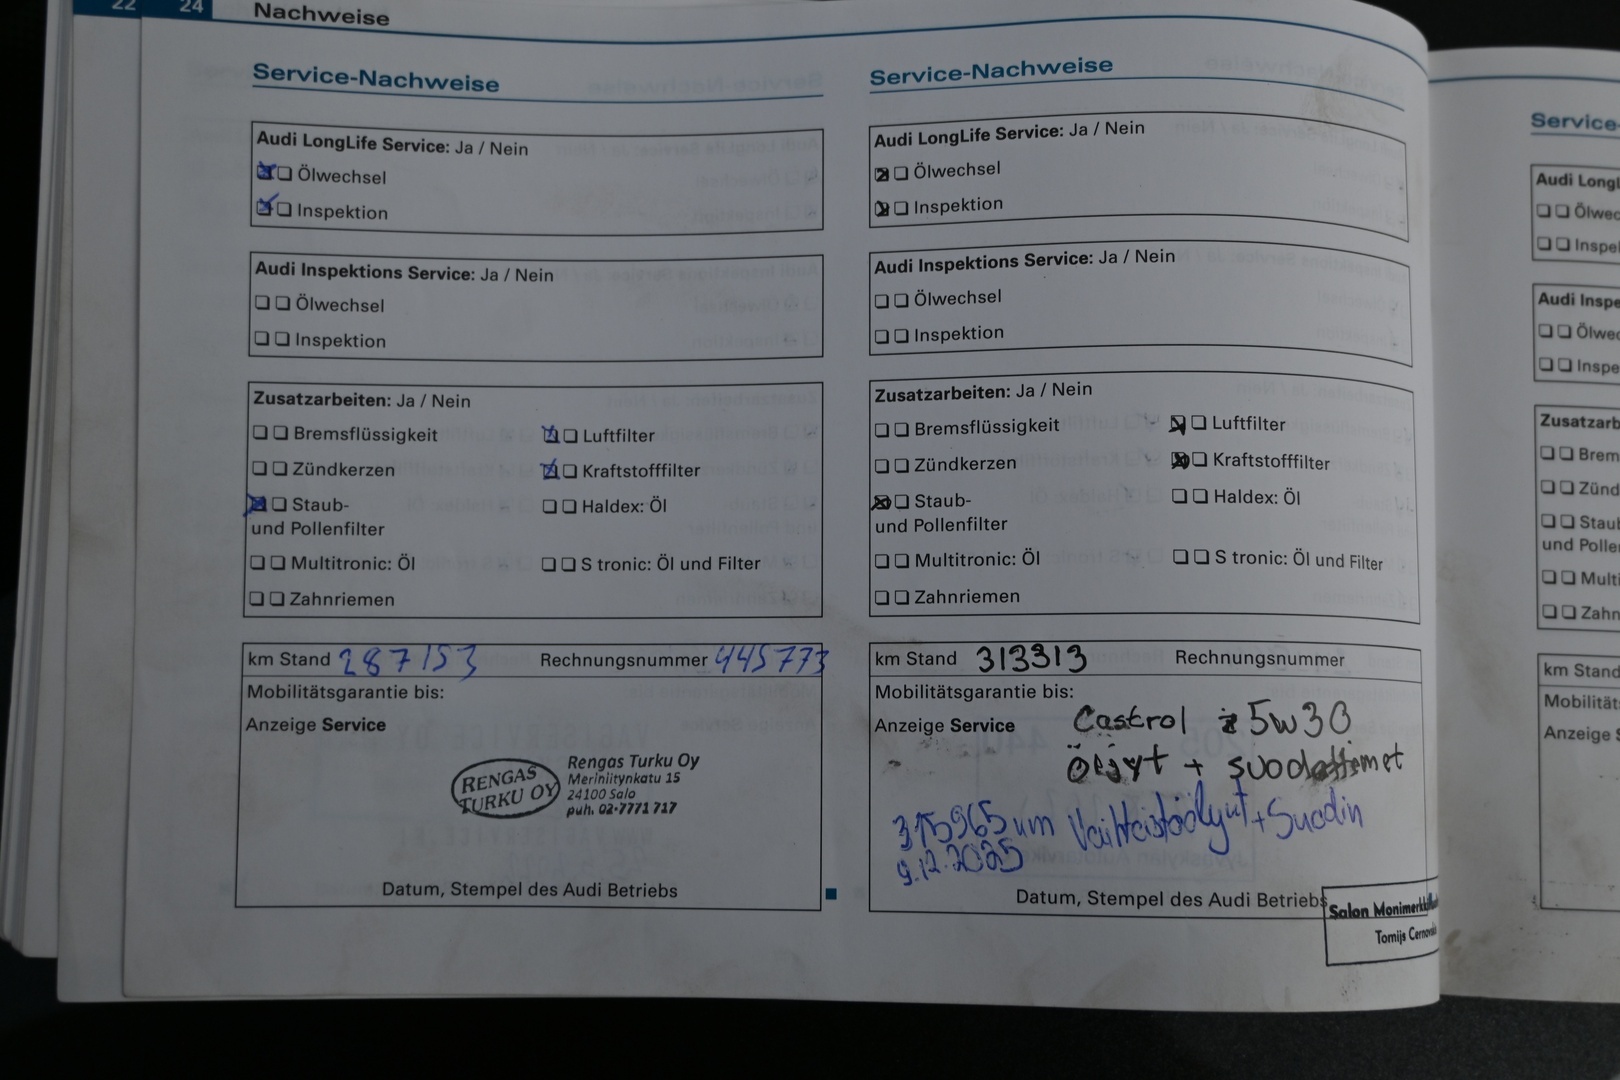 22 24 Nachweise
Service-Nachweise
Audi LongLife Service: Ja / Nein
Ölwechsel
Inspektion
Audi Inspektions Service: Ja / Nein
Ölwechsel
Inspektion
Zusatzarbeiten: Ja / Nein
Bremsflüssigkeit
Luftfilter
Zündkerzen
Kraftstofffilter
Staub-
und Pollenfilter
Haldex: Öl
Multitronic: Öl
S tronic: Öl und Filter
Zahnriemen
km Stand 287153 Rechnungsnummer 445773
Mobilitätsgarantie bis:
Anzeige Service
RENGAS
TURKU OY
Rengas Turku Oy
Meriniitynkatu 15
24100 Salo
puh. 02-7771 717
Datum, Stempel des Audi Betriebs
Service-Nachweise
Audi LongLife Service: Ja / Nein
Ölwechsel
Inspektion
Audi Inspektions Service: Ja / Nein
Ölwechsel
Inspektion
Zusatzarbeiten: Ja / Nein
Bremsflüssigkeit
Luftfilter
Zündkerzen
Kraftstofffilter
Staub-
und Pollenfilter
Haldex: Öl
Multitronic: Öl
S tronic: Öl und Filter
Zahnriemen
km Stand 313313 Rechnungsnummer
Mobilitätsgarantie bis:
Anzeige Service
Castrol 5w30
Öljyt + suodattimet
315965 Vaihteistoöljyt + Suodin
9.12.2025
Datum, Stempel des Audi Betriebs
Salon
Tomijs
Service-
Audi Longl
Ölwec
Inspel
Audi Inspe
Ölwec
Inspe
Zusatzarb
Brem
Zünd
Staul
und Polle
Multi
Zahn
km Stand
Mobilität
Anzeige S